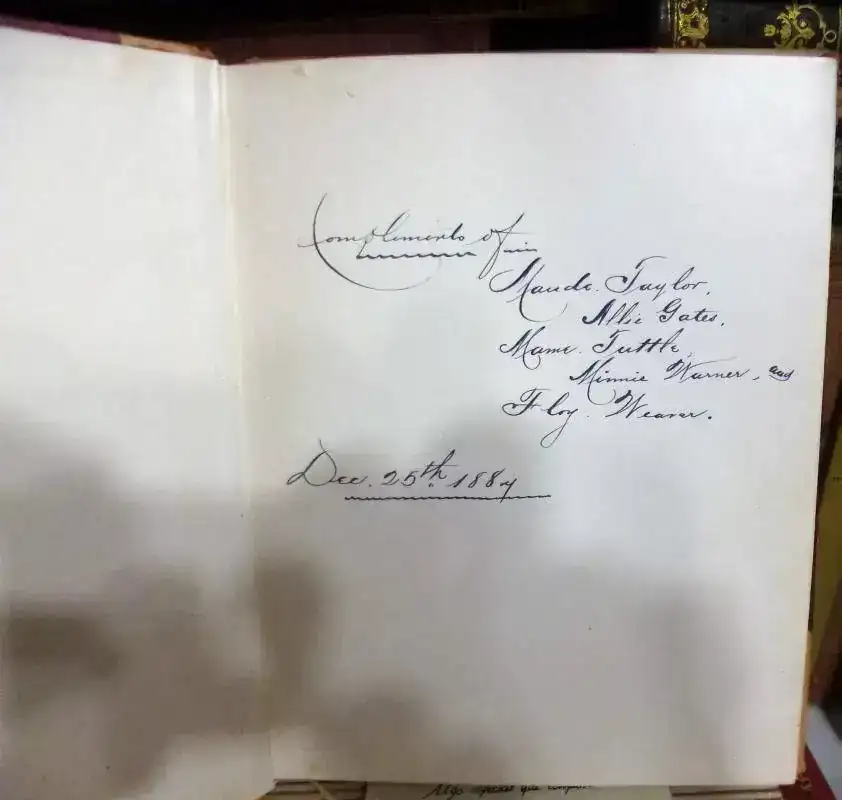 Compliments of
Maude. Taylor,
Allie Gates,
Mame. Tuttle,
Minnie Warner, and
Floy. Weaver.
Dec. 25th 1884
Algo especial que